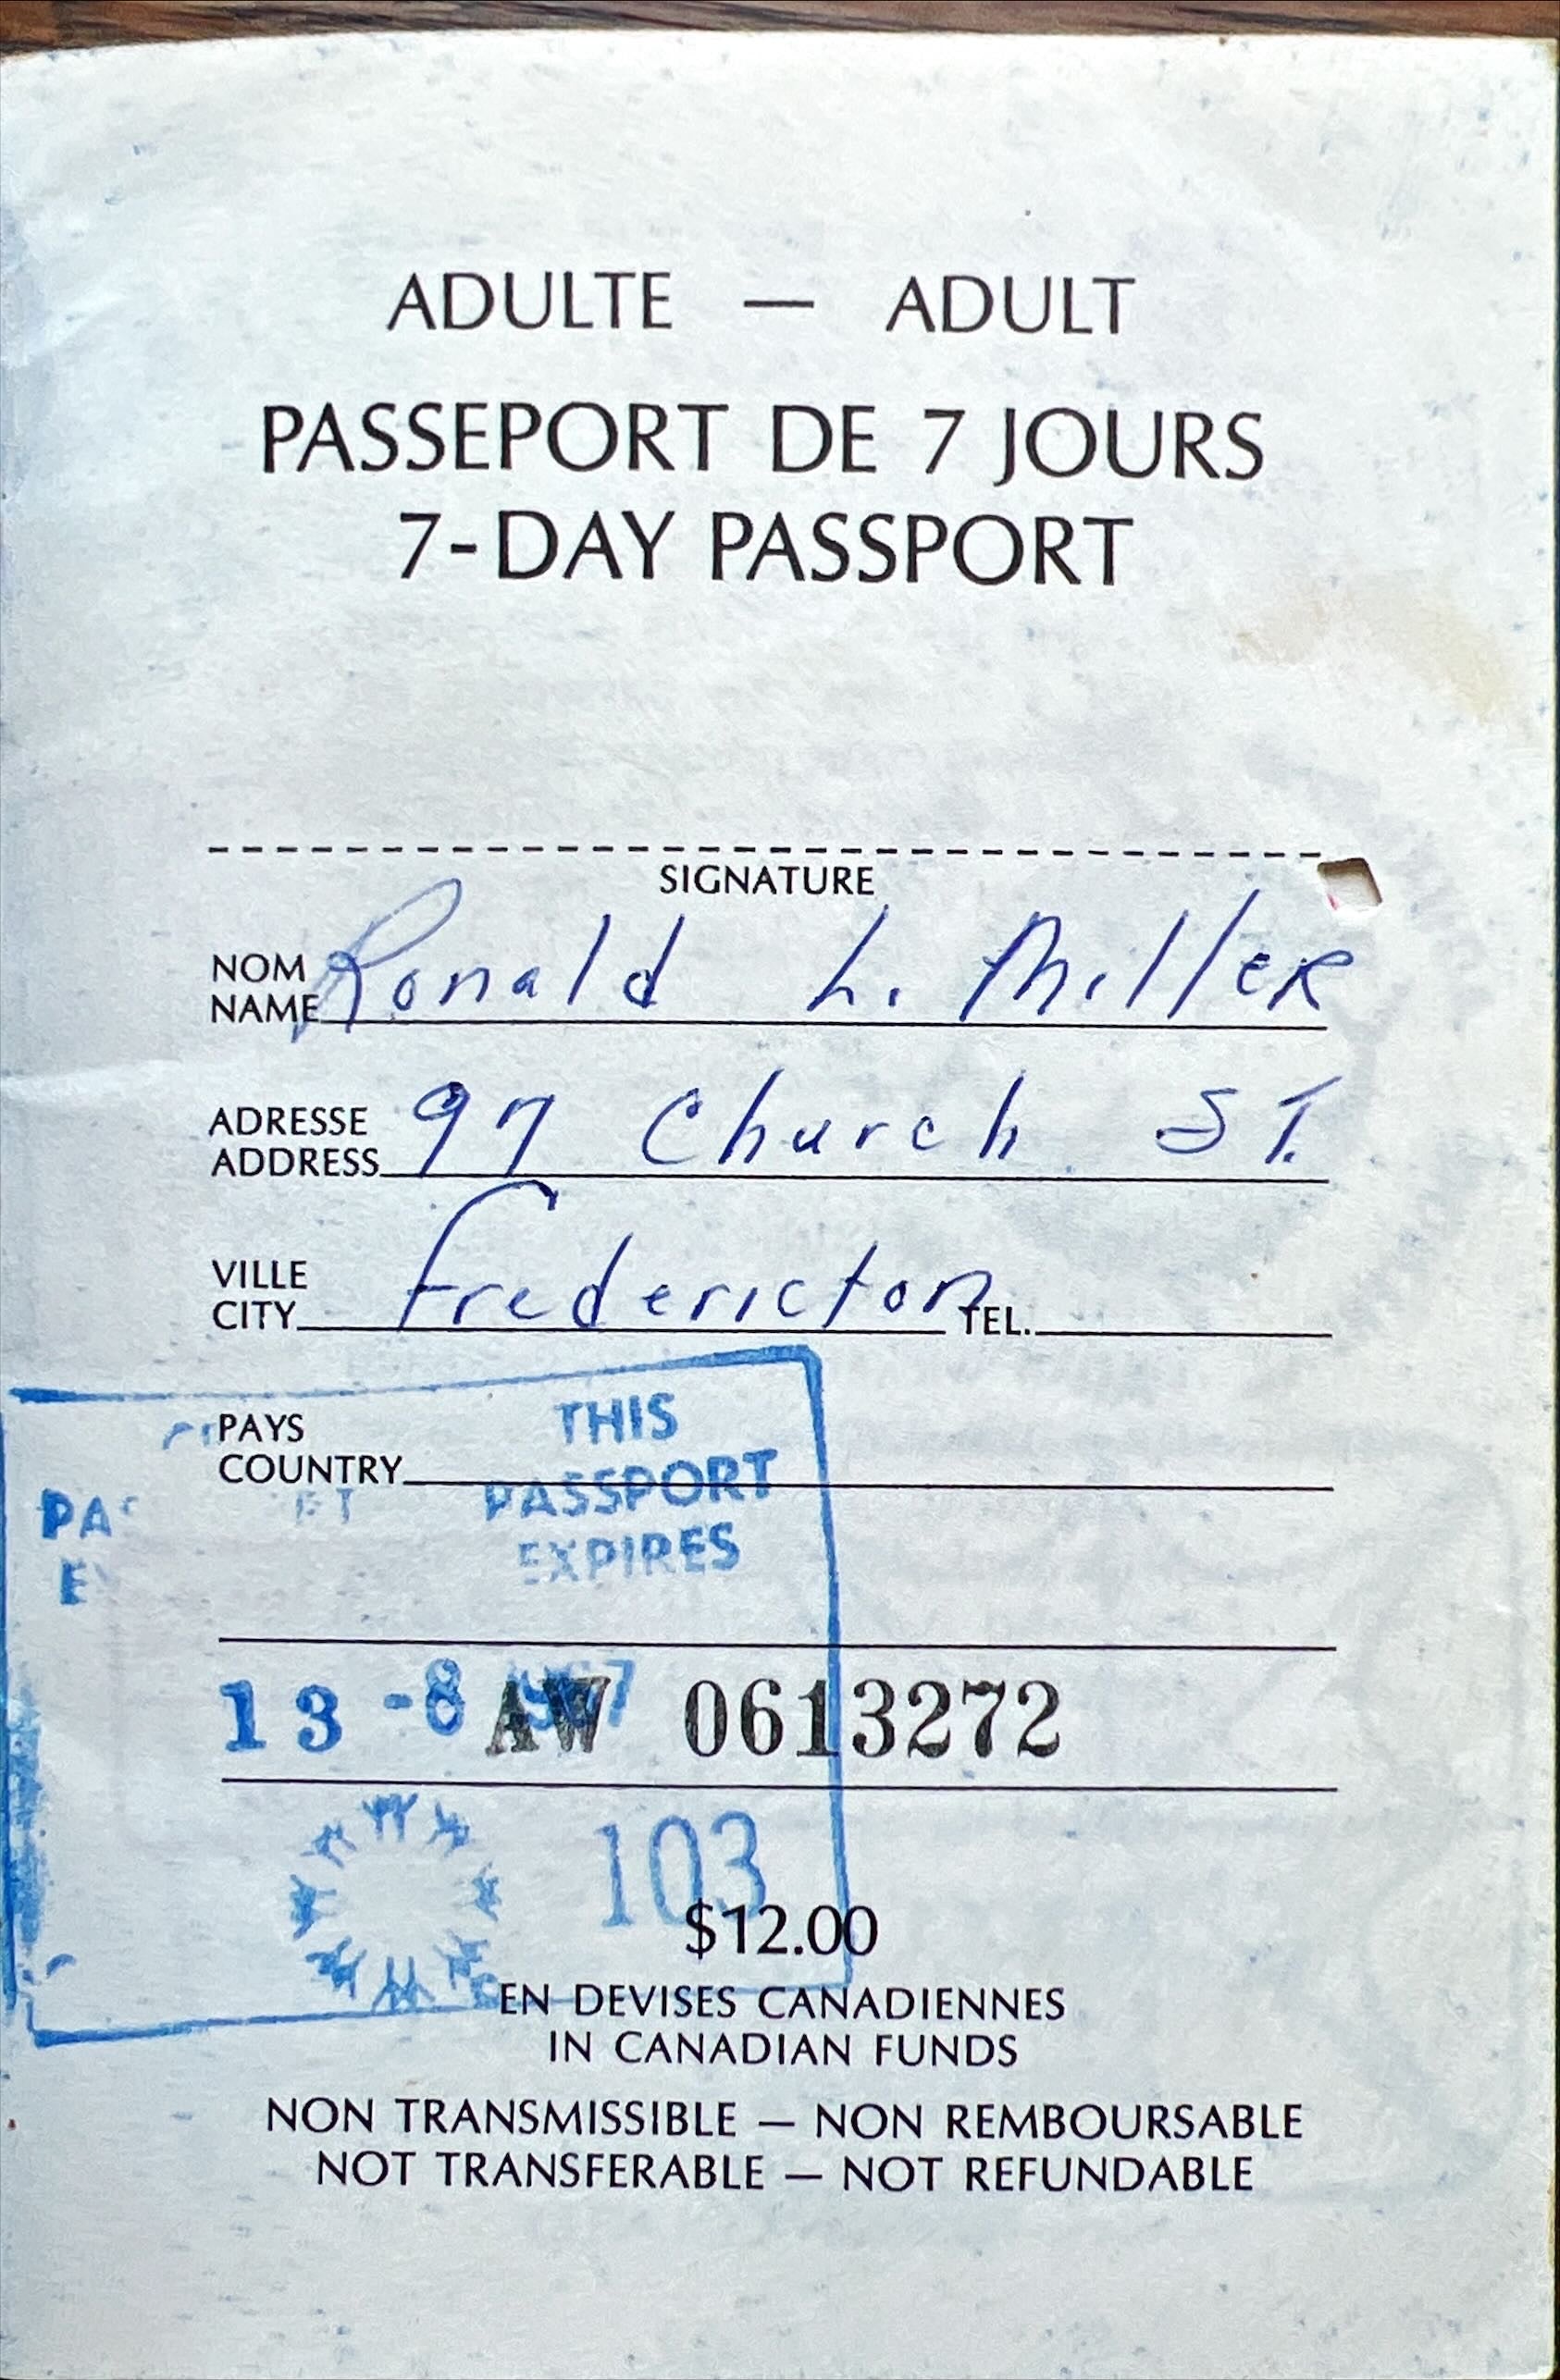 ADULTE — ADULT
PASSEPORT DE 7 JOURS
7-DAY PASSPORT
SIGNATURE
NOM
NAME Ronald L. Miller
ADRESSE
ADDRESS 97 Church ST.
VILLE
CITY Fredericton TEL.
PAYS
COUNTRY
THIS
PASSPORT
EXPIRES
13 -8 1967
AW 0613272
103
$12.00
EN DEVISES CANADIENNES
IN CANADIAN FUNDS
NON TRANSMISSIBLE — NON REMBOURSABLE
NOT TRANSFERABLE — NOT REFUNDABLE